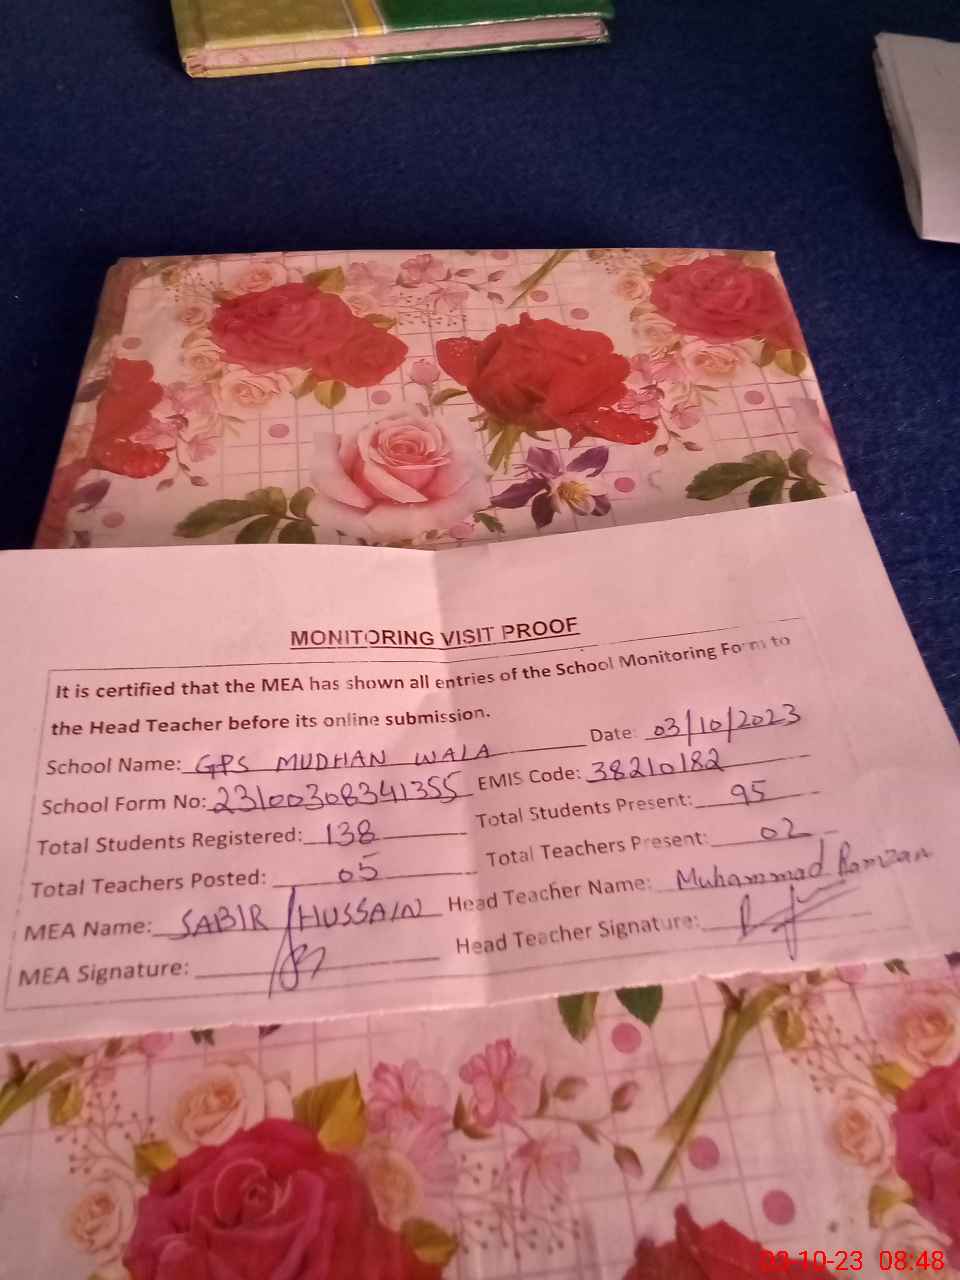 MONITORING VISIT PROOF
It is certified that the MEA has shown all entries of the School Monitoring Form to
the Head Teacher before its online submission.
School Name: GPS MUDHAN WALA Date: 03/10/2023
School Form No: 23100308341355 EMIS Code: 38210182
Total Students Registered: 138 Total Students Present: 95
Total Teachers Posted: 05 Total Teachers Present: 02
MEA Name: SABIR HUSSAIN Head Teacher Name: Muhammad Ramzan
MEA Signature: Head Teacher Signature:
03-10-23 08:48